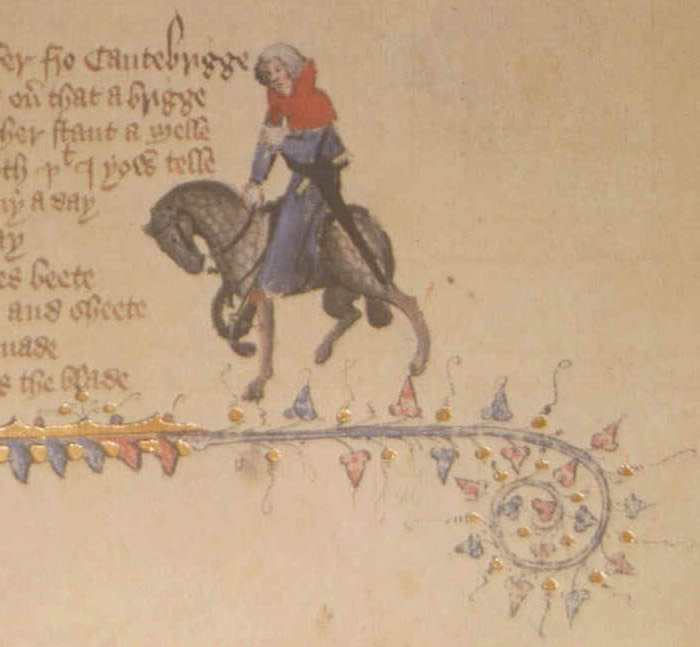 fer fro Cantebrigge
ou̅ that a brigge
her stant a melle
th þᵗ I yow telle
ny a day
ay
es beete
and sheete
nade
s the blade